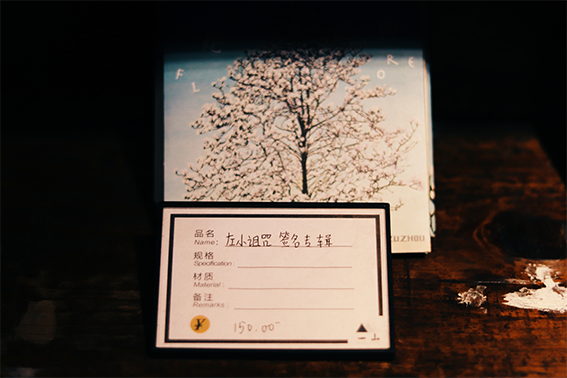 FL ORE
品名
Name: 左小诅咒 签名专辑
规格
Specification:
材质
Material:
备注
Remarks:
¥ 150.00
一山